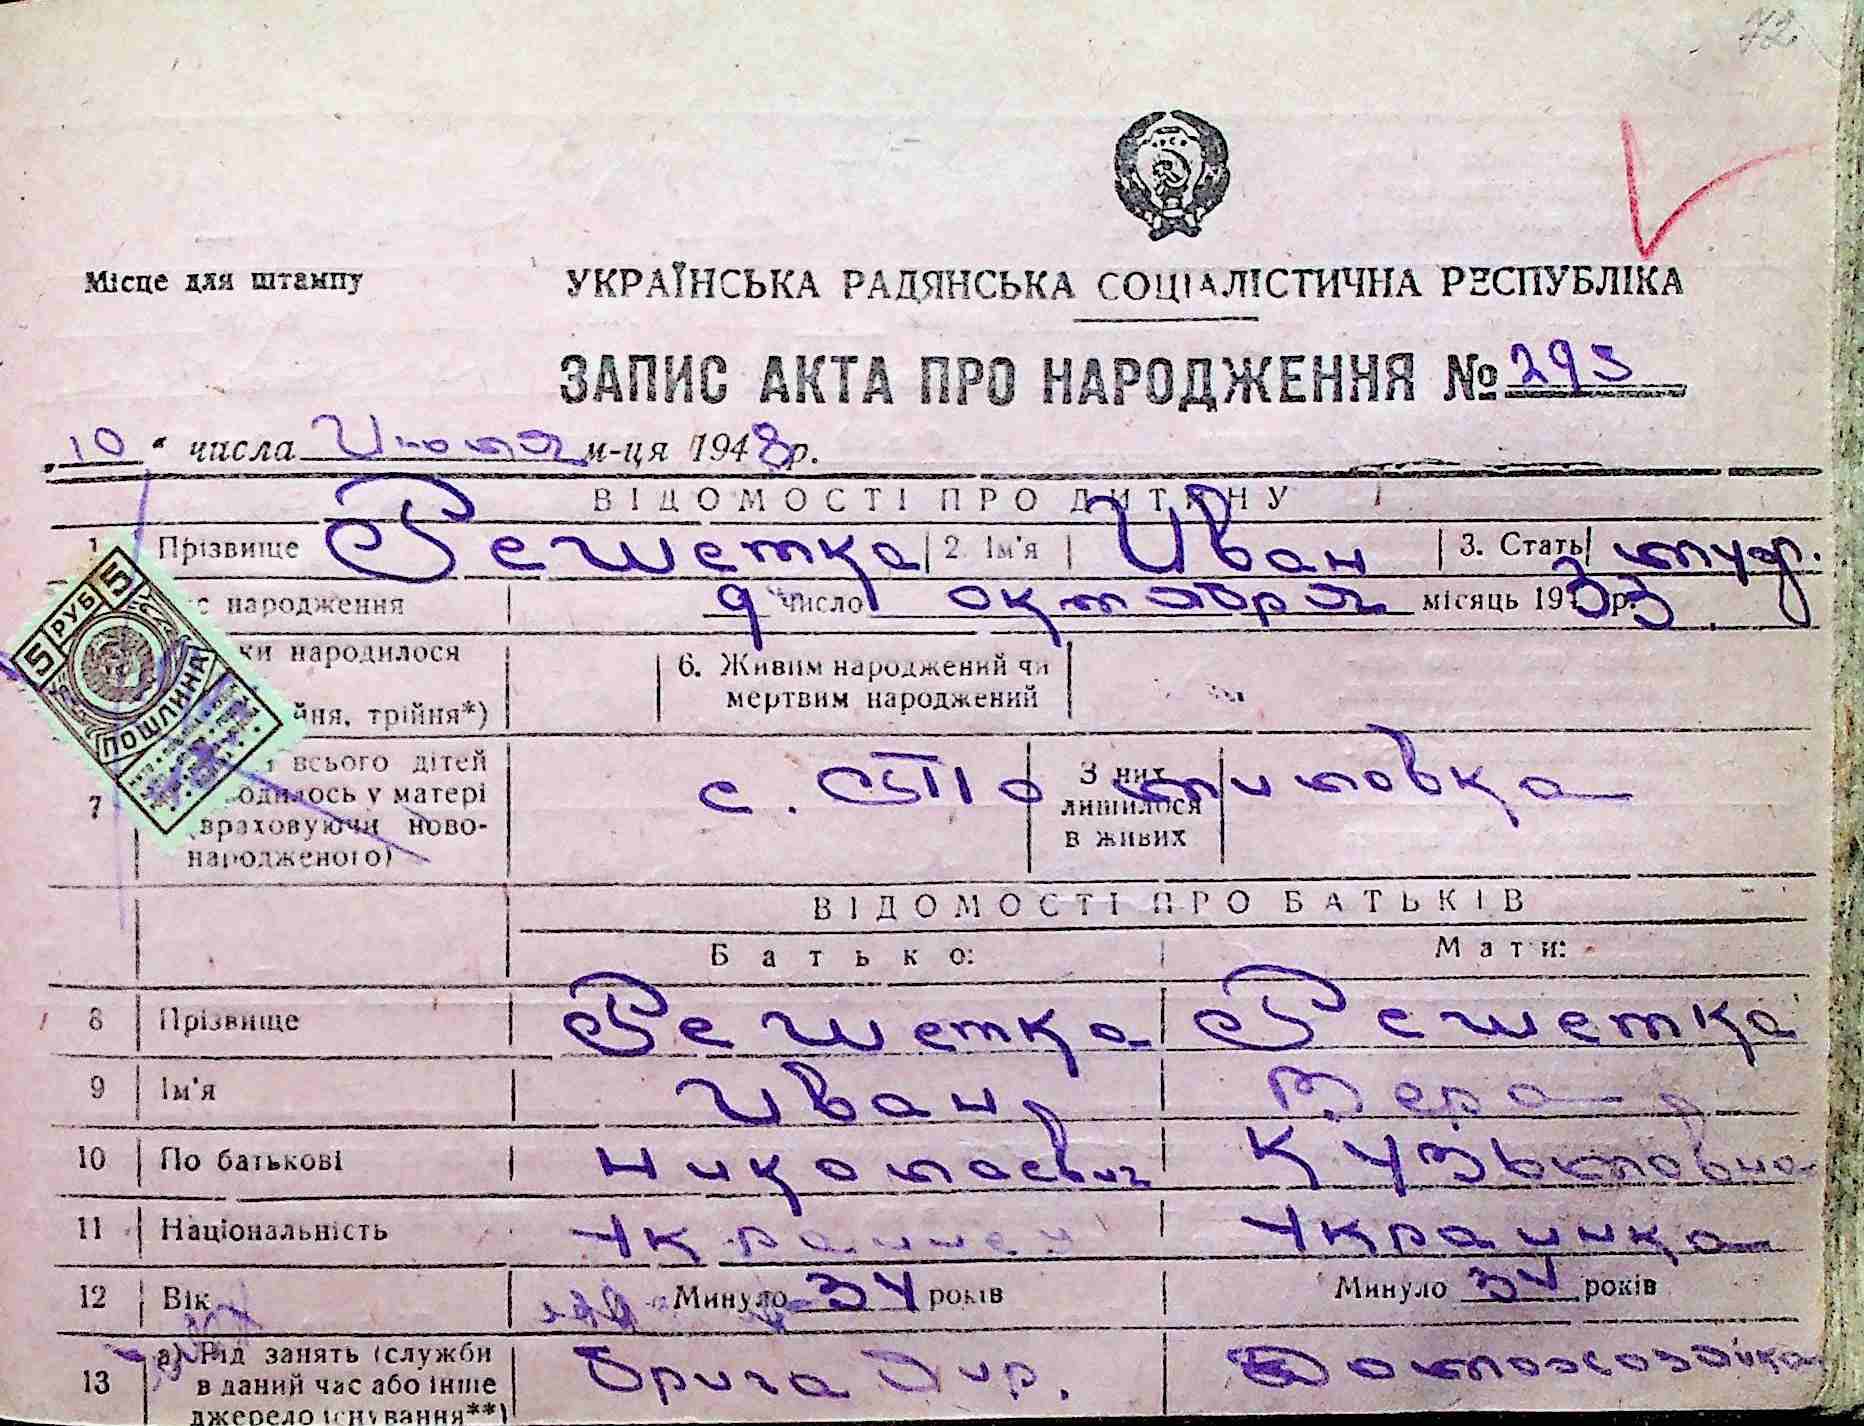 72
УРСР
Місце для штампу
УКРАЇНСЬКА РАДЯНСЬКА СОЦІАЛІСТИЧНА РЕСПУБЛІКА
ЗАПИС АКТА ПРО НАРОДЖЕННЯ № 295
„10" числа Июля м-ця 1948 р.
ВІДОМОСТІ ПРО ДИТИНУ
1 Прізвище Решетка 2. Ім'я Иван 3. Стать муж.
с народження 9 число октября місяць 1933 р.
ки народилося 6. Живим народжений чи
мертвим народжений
йня, трійня*)
5 РУБ 5
ПОШЛИНА
всього дітей З них
7 одилось у матері с. лишилося
(враховуючи ново- в живих
народженого)
ВІДОМОСТІ ПРО БАТЬКІВ
Батько: Мати:
8 Прізвище Решетка Решетка
9 Ім'я Иван Вера
10 По батькові Николаевич Кузьмовна
11 Національність Украинец Украинка
12 Вік Минуло 34 років Минуло 34 років
13 а) Рід занять (служби Бригадир. Домохозайка
в даний час або інше
джерело існування**)